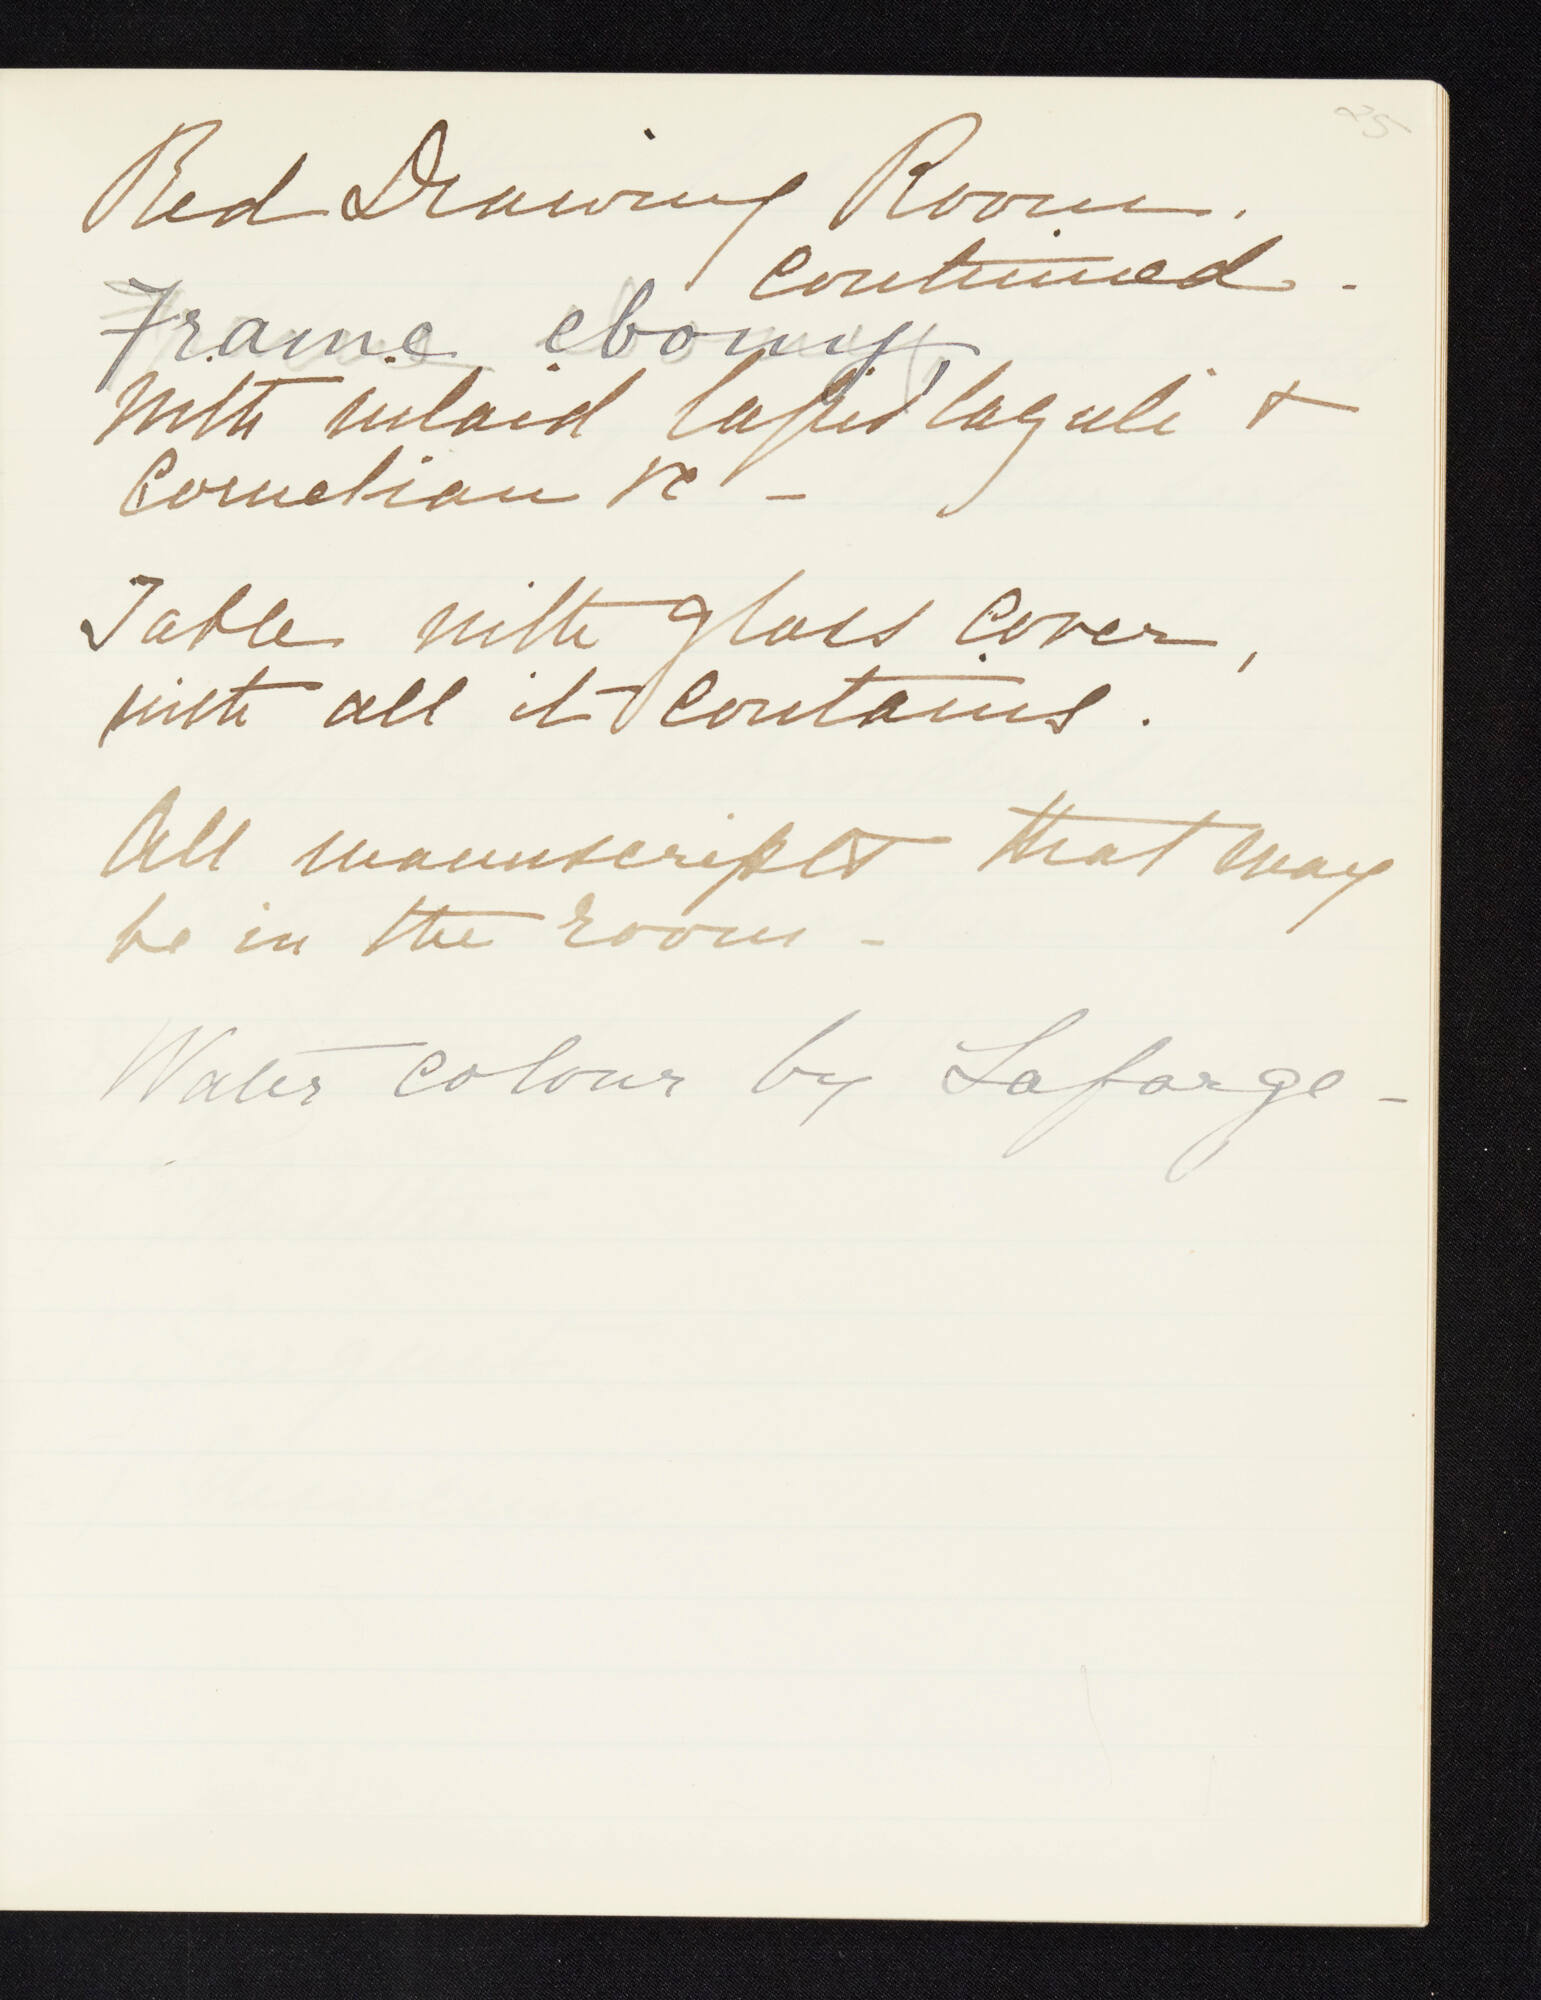 25
Red Drawing Room.
continued -
Frame ebony
with inlaid lapis laguli &
Cornelian &c -
Table with glass cover,
with all it contains.
All manuscripts that may
be in the room -
Water colour by Lafarge -